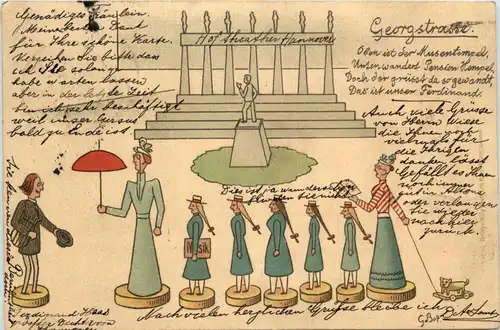 Gnädiges Fräulein.
Meinen besten Dank
für Ihre schöne Karte.
Verzeihen Sie bitte das
ich Sie solange
habe warten lassen
aber in der letzte Zeit
bin ich sehr beschäftigt
weil unser Cursus
bald zu Ende ist
Hof theather Hannover
Georgstrasse.
Oben ist der Musentempel,
Unten wandert Pension Hempel,
Doch der grüsst da so gewandt,
Das ist unser Ferdinand.
Auch viele Grüsse
von Herrn Wiese
die Ihnen
vielmals für
die Ihrigen
danken lässt
Gefällt es Ihnen
noch immer
gut in Altona
oder verlangen
Sie wieder
nach hier
zurück.
Dies ist ja wunderschön
Musik
Ferdinand Haas
Nach vielen herzlichen Grüsse bleibe ich